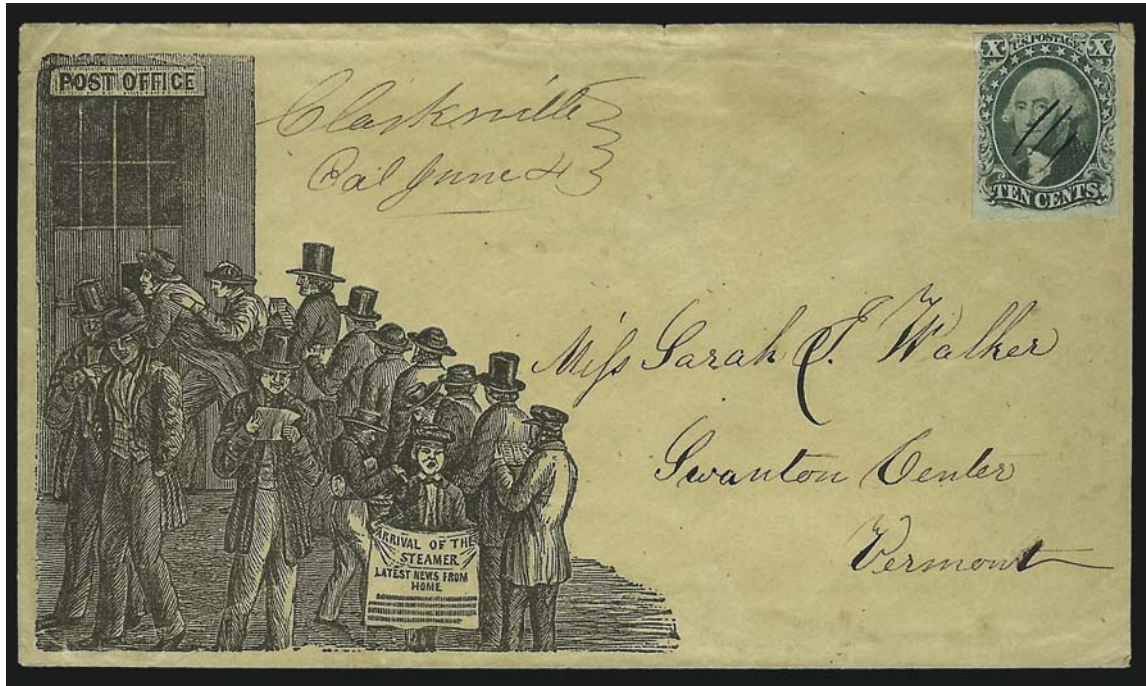 POST OFFICE
Clarksville
Cal June 4
X U.S. POSTAGE X
TEN CENTS.
Miss Sarah J. Walker
Swanton Center
Vermont
ARRIVAL OF THE
STEAMER
LATEST NEWS FROM
HOME